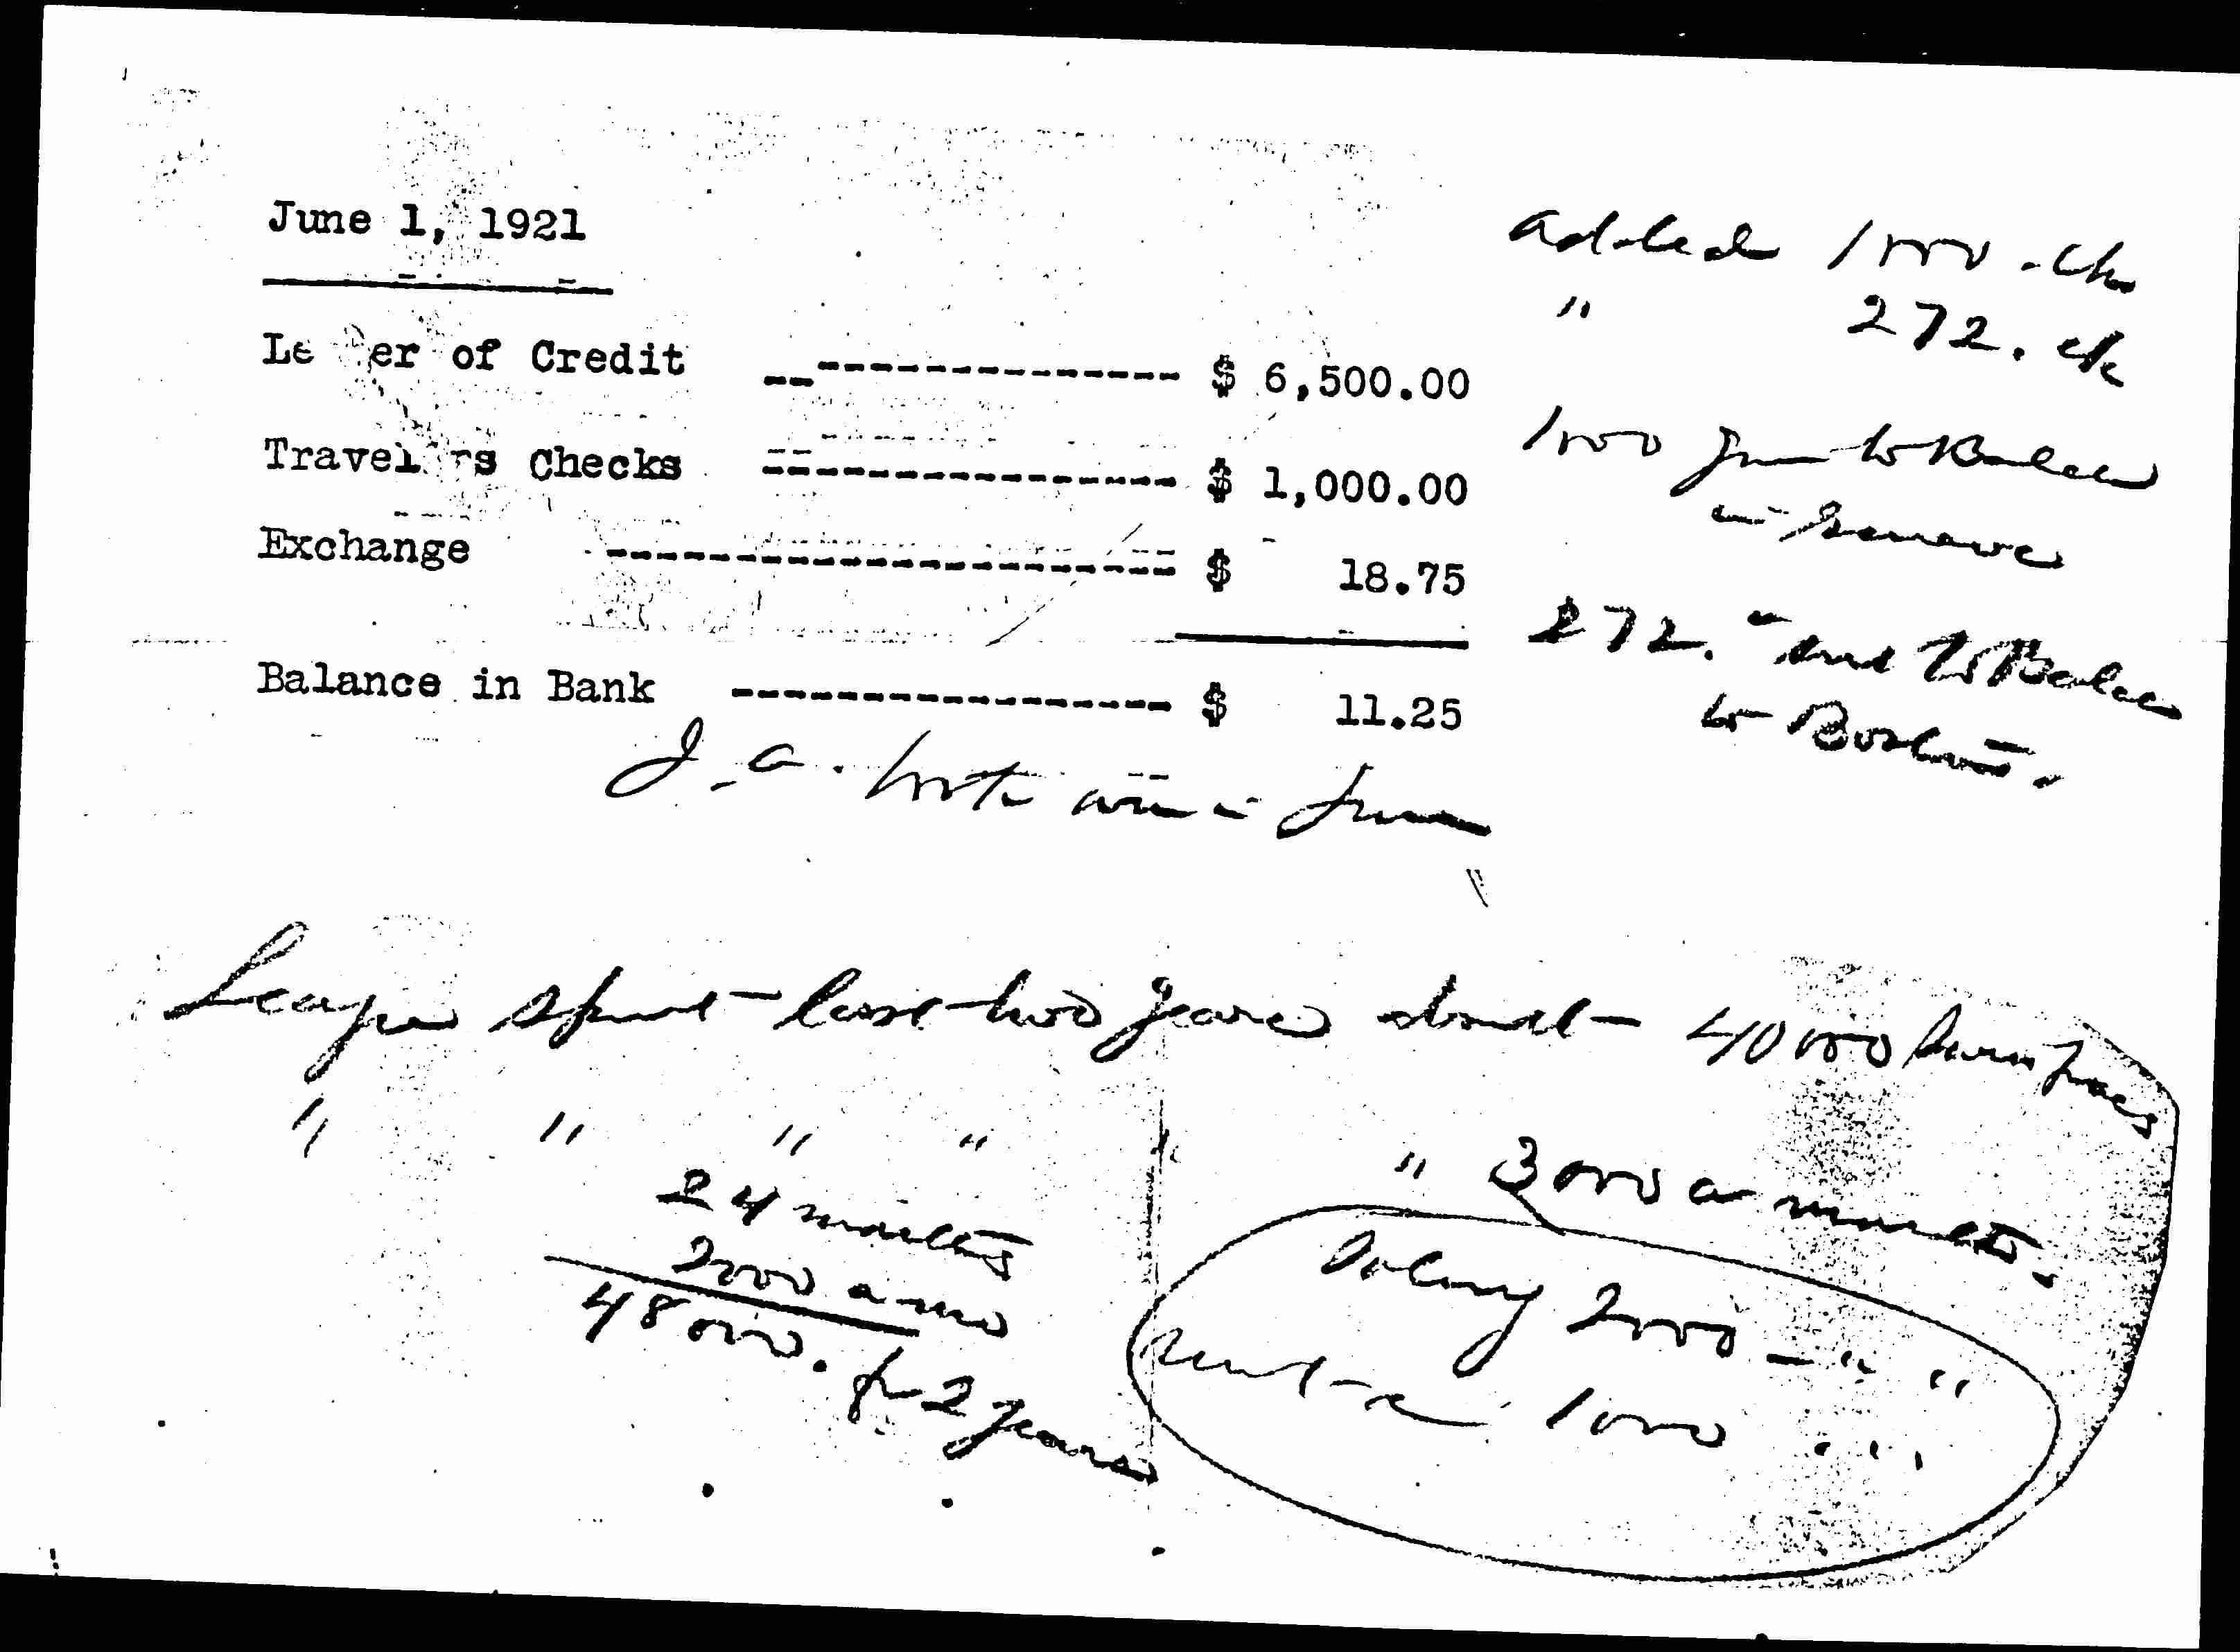 June 1, 1921
Le er of Credit ---------------- $ 6,500.00
Travel rs Checks ---------------- $ 1,000.00
Exchange ---------------------- $ 18.75
Balance in Bank ----------------- $ 11.25
added 1000. ck
" 272. ck
1000 to Balee
in Geneva
272. to Balee
in Boston.
J. a.
spent last two years about 40000
" " " " " 3000 a month.
24 months
2000 a mo
48000. for 2 years
Salary 2000 - " "
1000 " "